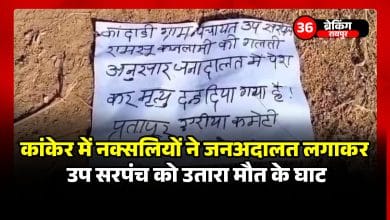 36 ब्रेकिंग
रायपुर
कोदाडी ग्राम पंचायत उप सरपंच
रामसू कचलामी की गलती
अनुसार जनादालत मे पेश
कर मृत्यु दन्डदिया गया है!
प्रतापुर एरीया कमेटी
कांकेर में नक्सलियों ने जनअदालत लगाकर
उप सरपंच को उतारा मौत के घाट